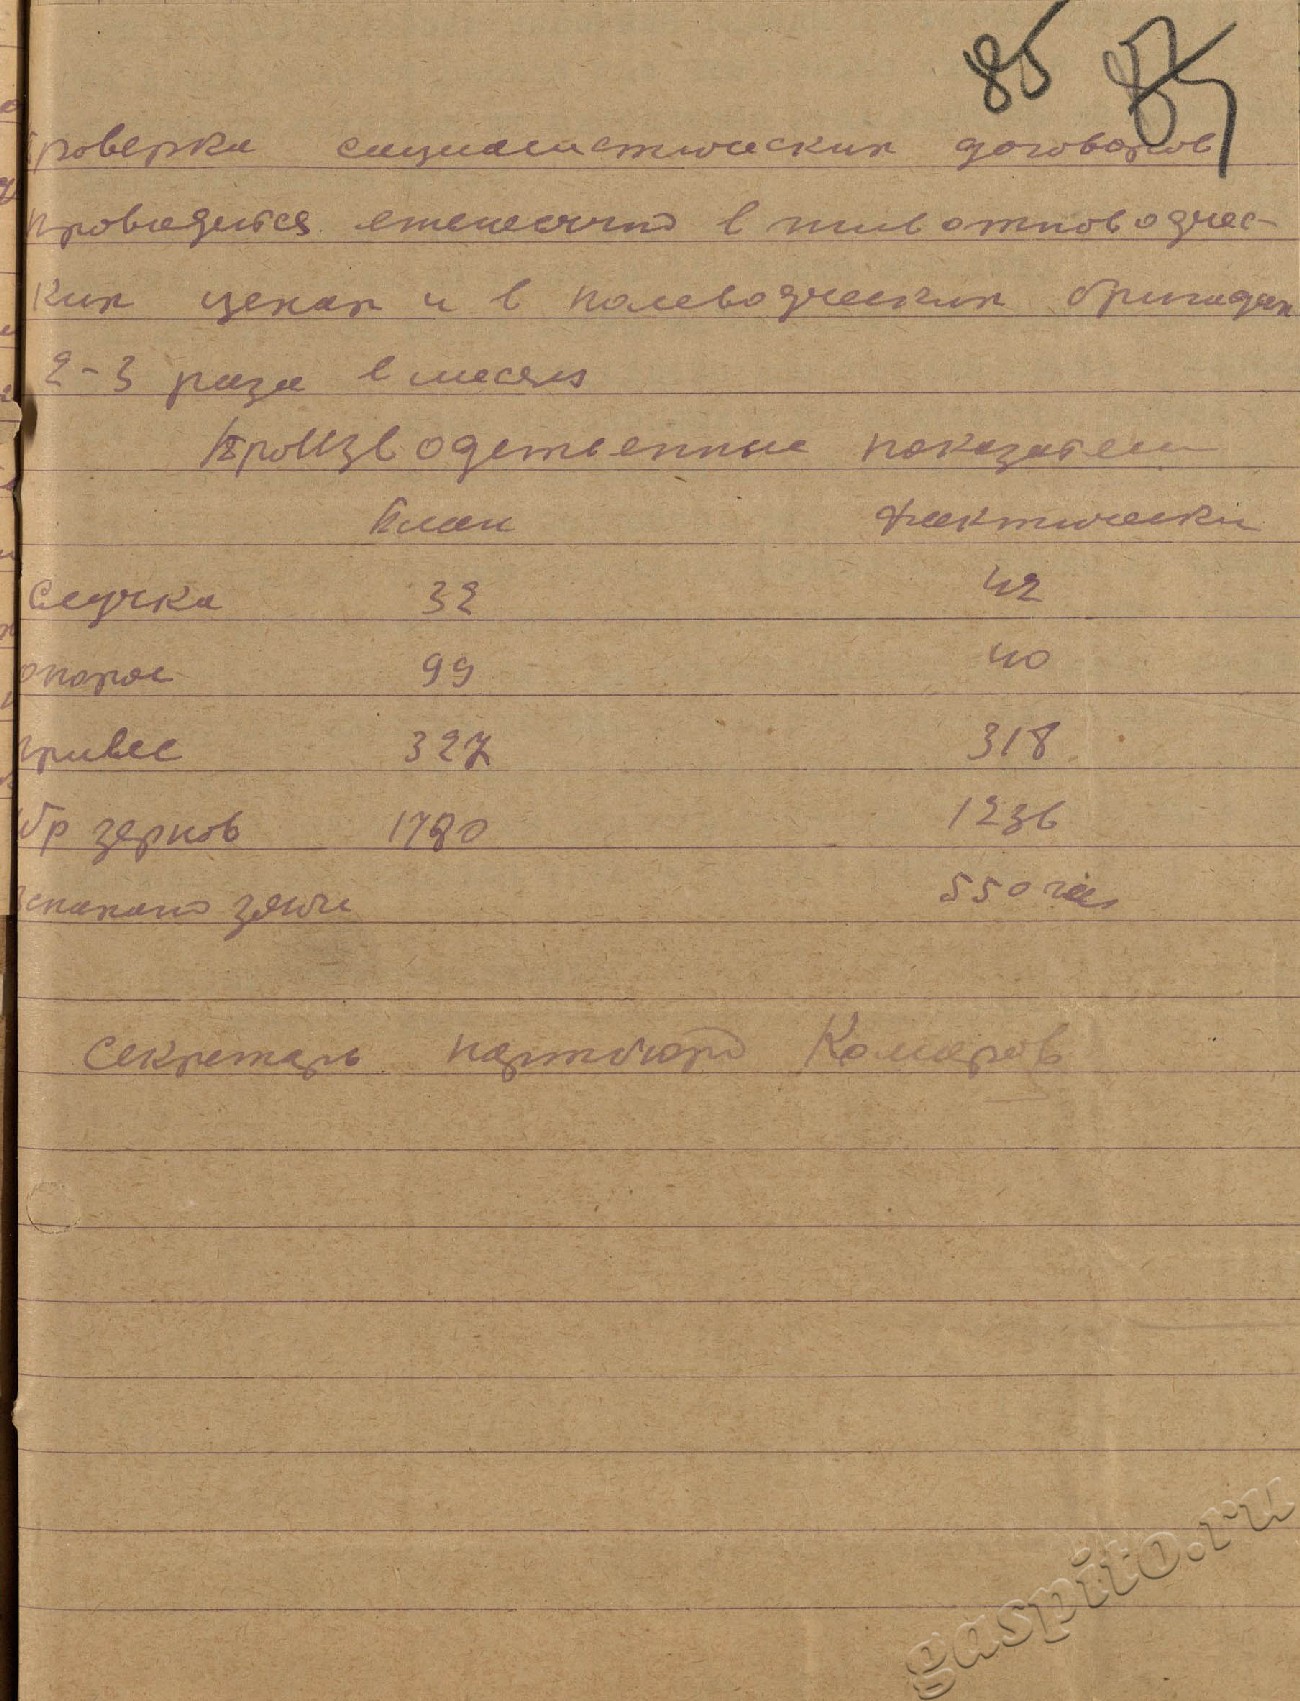 85
проверка социалистических договоров
проводится ежемесячно в животноводчес-
ких цехах и в полеводческих бригадах
2-3 раза в месяц
Производственные показатели
План Фактически
Случка 32 42
опорос 99 40
привес 327 318
убр зернов 1780 1236
Вспахано зяби 550 га
Секретарь партбюро Комаров
gaspito.ru